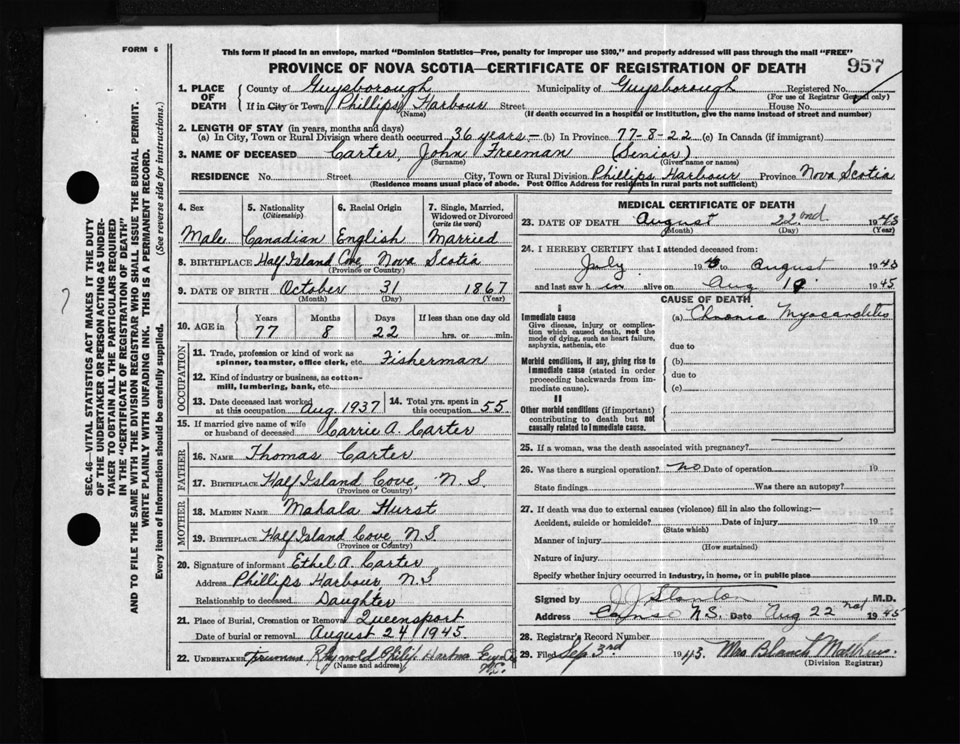 FORM 6
This form if placed in an envelope, marked "Dominion Statistics—Free, penalty for improper use $300," and properly addressed will pass through the mail "FREE"
PROVINCE OF NOVA SCOTIA—CERTIFICATE OF REGISTRATION OF DEATH 957
1. PLACE OF DEATH County of Guysborough Municipality of Guysborough Registered No.
(For use of Registrar General only)
If in City or Town Phillips Harbour Street House No.
(Name) (If death occurred in a hospital or institution, give the name instead of street and number)
2. LENGTH OF STAY (in years, months and days)
(a) In City, Town or Rural Division where death occurred 36 years — (b) In Province 77-8-22 (c) In Canada (if immigrant)
3. NAME OF DECEASED Carter, John Freeman (Senior)
(Surname) (Given name or names)
RESIDENCE No. Street City, Town or Rural Division Phillips Harbour Province Nova Scotia
(Residence means usual place of abode. Post Office Address for residents in rural parts not sufficient)
4. Sex 5. Nationality (Citizenship) 6. Racial Origin 7. Single, Married, Widowed or Divorced (write the word)
Male Canadian English Married
8. BIRTHPLACE Half Island Cove Nova Scotia
(Province or Country)
9. DATE OF BIRTH October 31 1867
(Month) (Day) (Year)
10. AGE in Years Months Days If less than one day old
77 8 22 hrs. or min.
OCCUPATION
11. Trade, profession or kind of work as spinner, teamster, office clerk, etc. Fisherman
12. Kind of industry or business, as cotton-mill, lumbering, bank, etc.
13. Date deceased last worked at this occupation Aug. 1937 14. Total yrs. spent in this occupation 55
15. If married give name of wife or husband of deceased Carrie A. Carter
FATHER
16. NAME Thomas Carter
17. BIRTHPLACE Half Island Cove, N.S.
(Province or Country)
MOTHER
18. MAIDEN NAME Mahala Hurst
19. BIRTHPLACE Half Island Cove N.S.
(Province or Country)
20. Signature of informant Ethel A. Carter
Address Phillips Harbour, N.S
Relationship to deceased Daughter
21. Place of Burial, Cremation or Removal Queensport
Date of burial or removal August 24 1945.
22. UNDERTAKER Harbour
(Name and address)
MEDICAL CERTIFICATE OF DEATH
23. DATE OF DEATH August 22nd 1945
(Month) (Day) (Year)
24. I HEREBY CERTIFY that I attended deceased from:
July 19 to August 1945
and last saw h im alive on Aug 1945
CAUSE OF DEATH
I
Immediate cause (a) Chronic Myocarditis
Give disease, injury or complication which caused death, not the mode of dying, such as heart failure, asphyxia, asthenia, etc.
due to
Morbid conditions, if any, giving rise to immediate cause (stated in order proceeding backwards from immediate cause).
(b)
due to
(c)
II
Other morbid conditions (if important) contributing to death but not causally related to immediate cause.
25. If a woman, was the death associated with pregnancy?
26. Was there a surgical operation? No Date of operation 19
State findings Was there an autopsy?
27. If death was due to external causes (violence) fill in also the following:—
Accident, suicide or homicide? Date of injury 19
(State which)
Manner of injury
(How sustained)
Nature of injury
Specify whether injury occurred in industry, in home, or in public place
Signed by J J Stanton M.D.
Address Canso N.S. Date Aug 22nd 1945
28. Registrar's Record Number
29. Filed Sep 3rd 1945. Mrs Blanch
(Division Registrar)
SEC. 46—VITAL STATISTICS ACT MAKES IT THE DUTY
OF THE UNDERTAKER OR PERSON ACTING AS UNDER-
TAKER TO OBTAIN ALL THE PARTICULARS REQUIRED
IN THE "CERTIFICATE OF REGISTRATION OF DEATH"
AND TO FILE THE SAME WITH THE DIVISION REGISTRAR WHO SHALL ISSUE THE BURIAL PERMIT.
WRITE PLAINLY WITH UNFADING INK. THIS IS A PERMANENT RECORD.
Every item of Information should be carefully supplied. (See reverse side for instructions.)